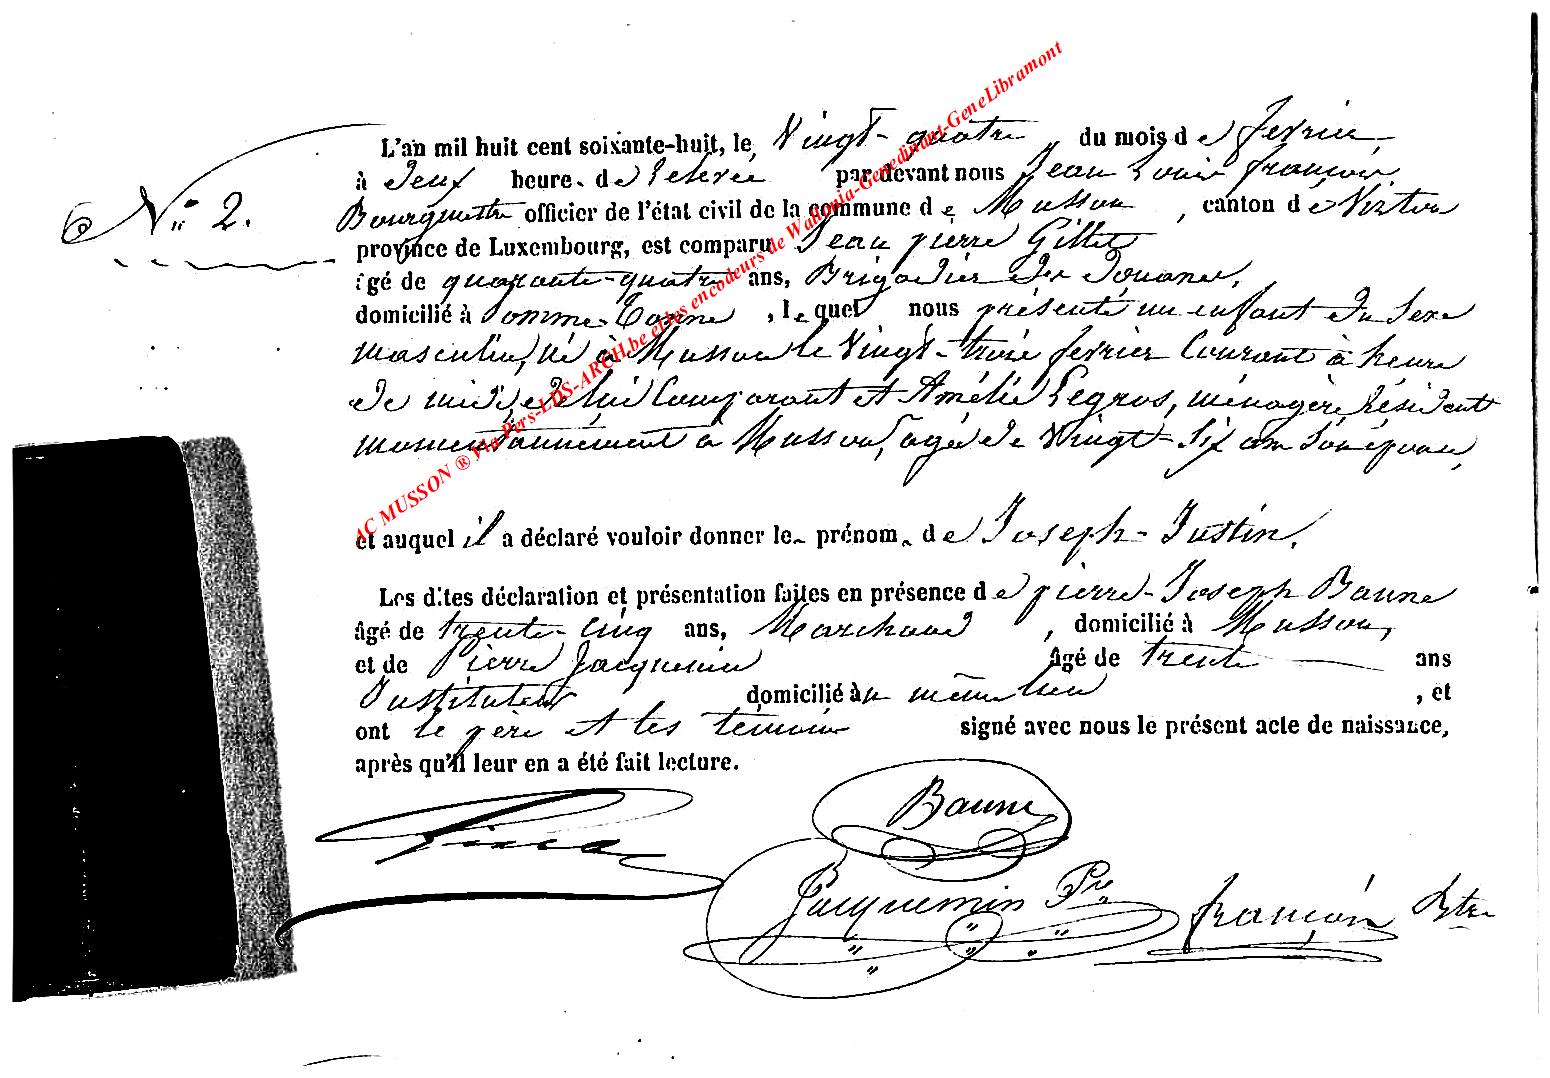 N° 2.
L'an mil huit cent soixante-huit, le Vingt-quatre du mois de février,
à Deux heure. de relevée par devant nous Jean Louis françois,
Bourgmestre officier de l'état civil de la commune de Musson, canton de Virton
province de Luxembourg, est comparu Jean pierre Gillet
âgé de quarante-quatre ans, Brigadier des Douanes,
domicilié à Somme-Tonne, le quel nous présenté un enfant du Sexe
masculin, né à Musson le Vingt-trois février Courant à heure
de midi, de lui Comparant et Amélie Legros, ménagère résident
momentannément à Musson, agée de Vingt-Six ans Son épouse,
et auquel il a déclaré vouloir donner le prénom de Joseph-Justin.
Les dites déclaration et présentation faites en présence de pierre-Joseph Baune
âgé de trente-cinq ans, Marchand, domicilié à Musson,
et de Pierre Jacquemin âgé de trente ans
Instituteur domicilié au même lieu, et
ont le père et les témoins signé avec nous le présent acte de naissance,
après qu'il leur en a été fait lecture.
Baune
Jacquemin Pre
françois Bgtre
AC MUSSON ® Via Pers-LDS-ARCH.be et les encodeurs de Wallonia-Genedinant-GeneLibramont